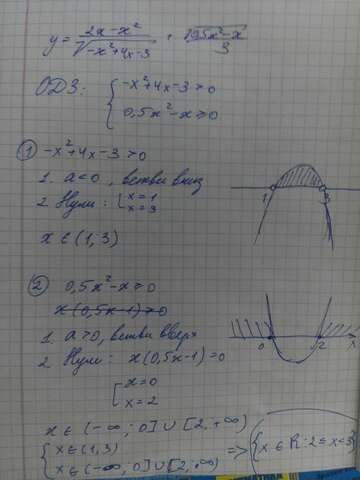 y = (2x - x²)/√(-x²+4x-3) + √(0,5x²-x)/3
ОДЗ: { -x²+4x-3 > 0
0,5x²-x ≥ 0
① -x²+4x-3 > 0
1. a<0, ветви вниз
2. Нули: [ x=1
x=3
1 3
x ∈ (1; 3)
② 0,5x²-x ≥ 0
x(0,5x-1) ≥ 0
1. a>0, ветви вверх
2. Нули: x(0,5x-1)=0
0 2 x
[ x=0
x=2
x ∈ (-∞; 0] ∪ [2; +∞)
{ x ∈ (1; 3)
x ∈ (-∞; 0] ∪ [2; +∞) => {x ∈ R: 2 ≤ x < 3}